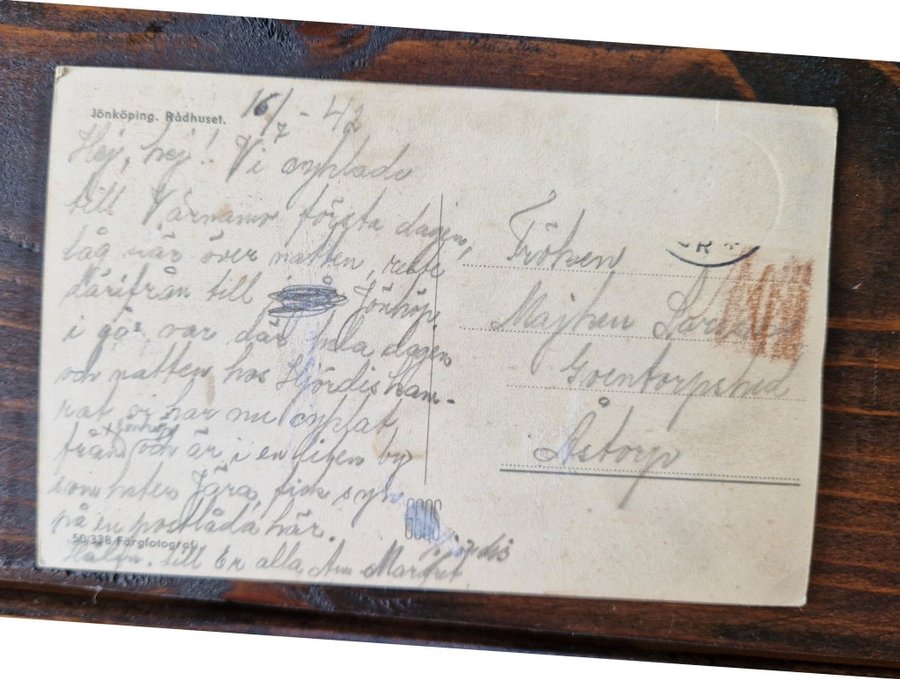 Jönköping. Rådhuset.
16/7 - 42
Hej, hej! Vi cyklade
till Värnamo första dagen,
låg där över natten, reste
därifrån till Jönköp.
i går, var där hela dagen
och natten hos Hjördis kam-
rat vi har nu cyklat
från Jönköp och är i en liten by
som heter Jära, fick syn
på en postlåda här.
50/338 Färgfotografi
Hälsn. till Er alla Ann Margret
Hjördis
Fröken
Majken
Åstorp